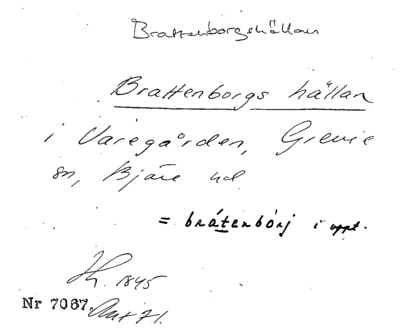 Brattenborgshällan
Brattenborgs hällan
i Varegården, Grevie
sn, Bjäre hd
= brátenbórj i uppt.
1845
Nr 7067. Ant 71.